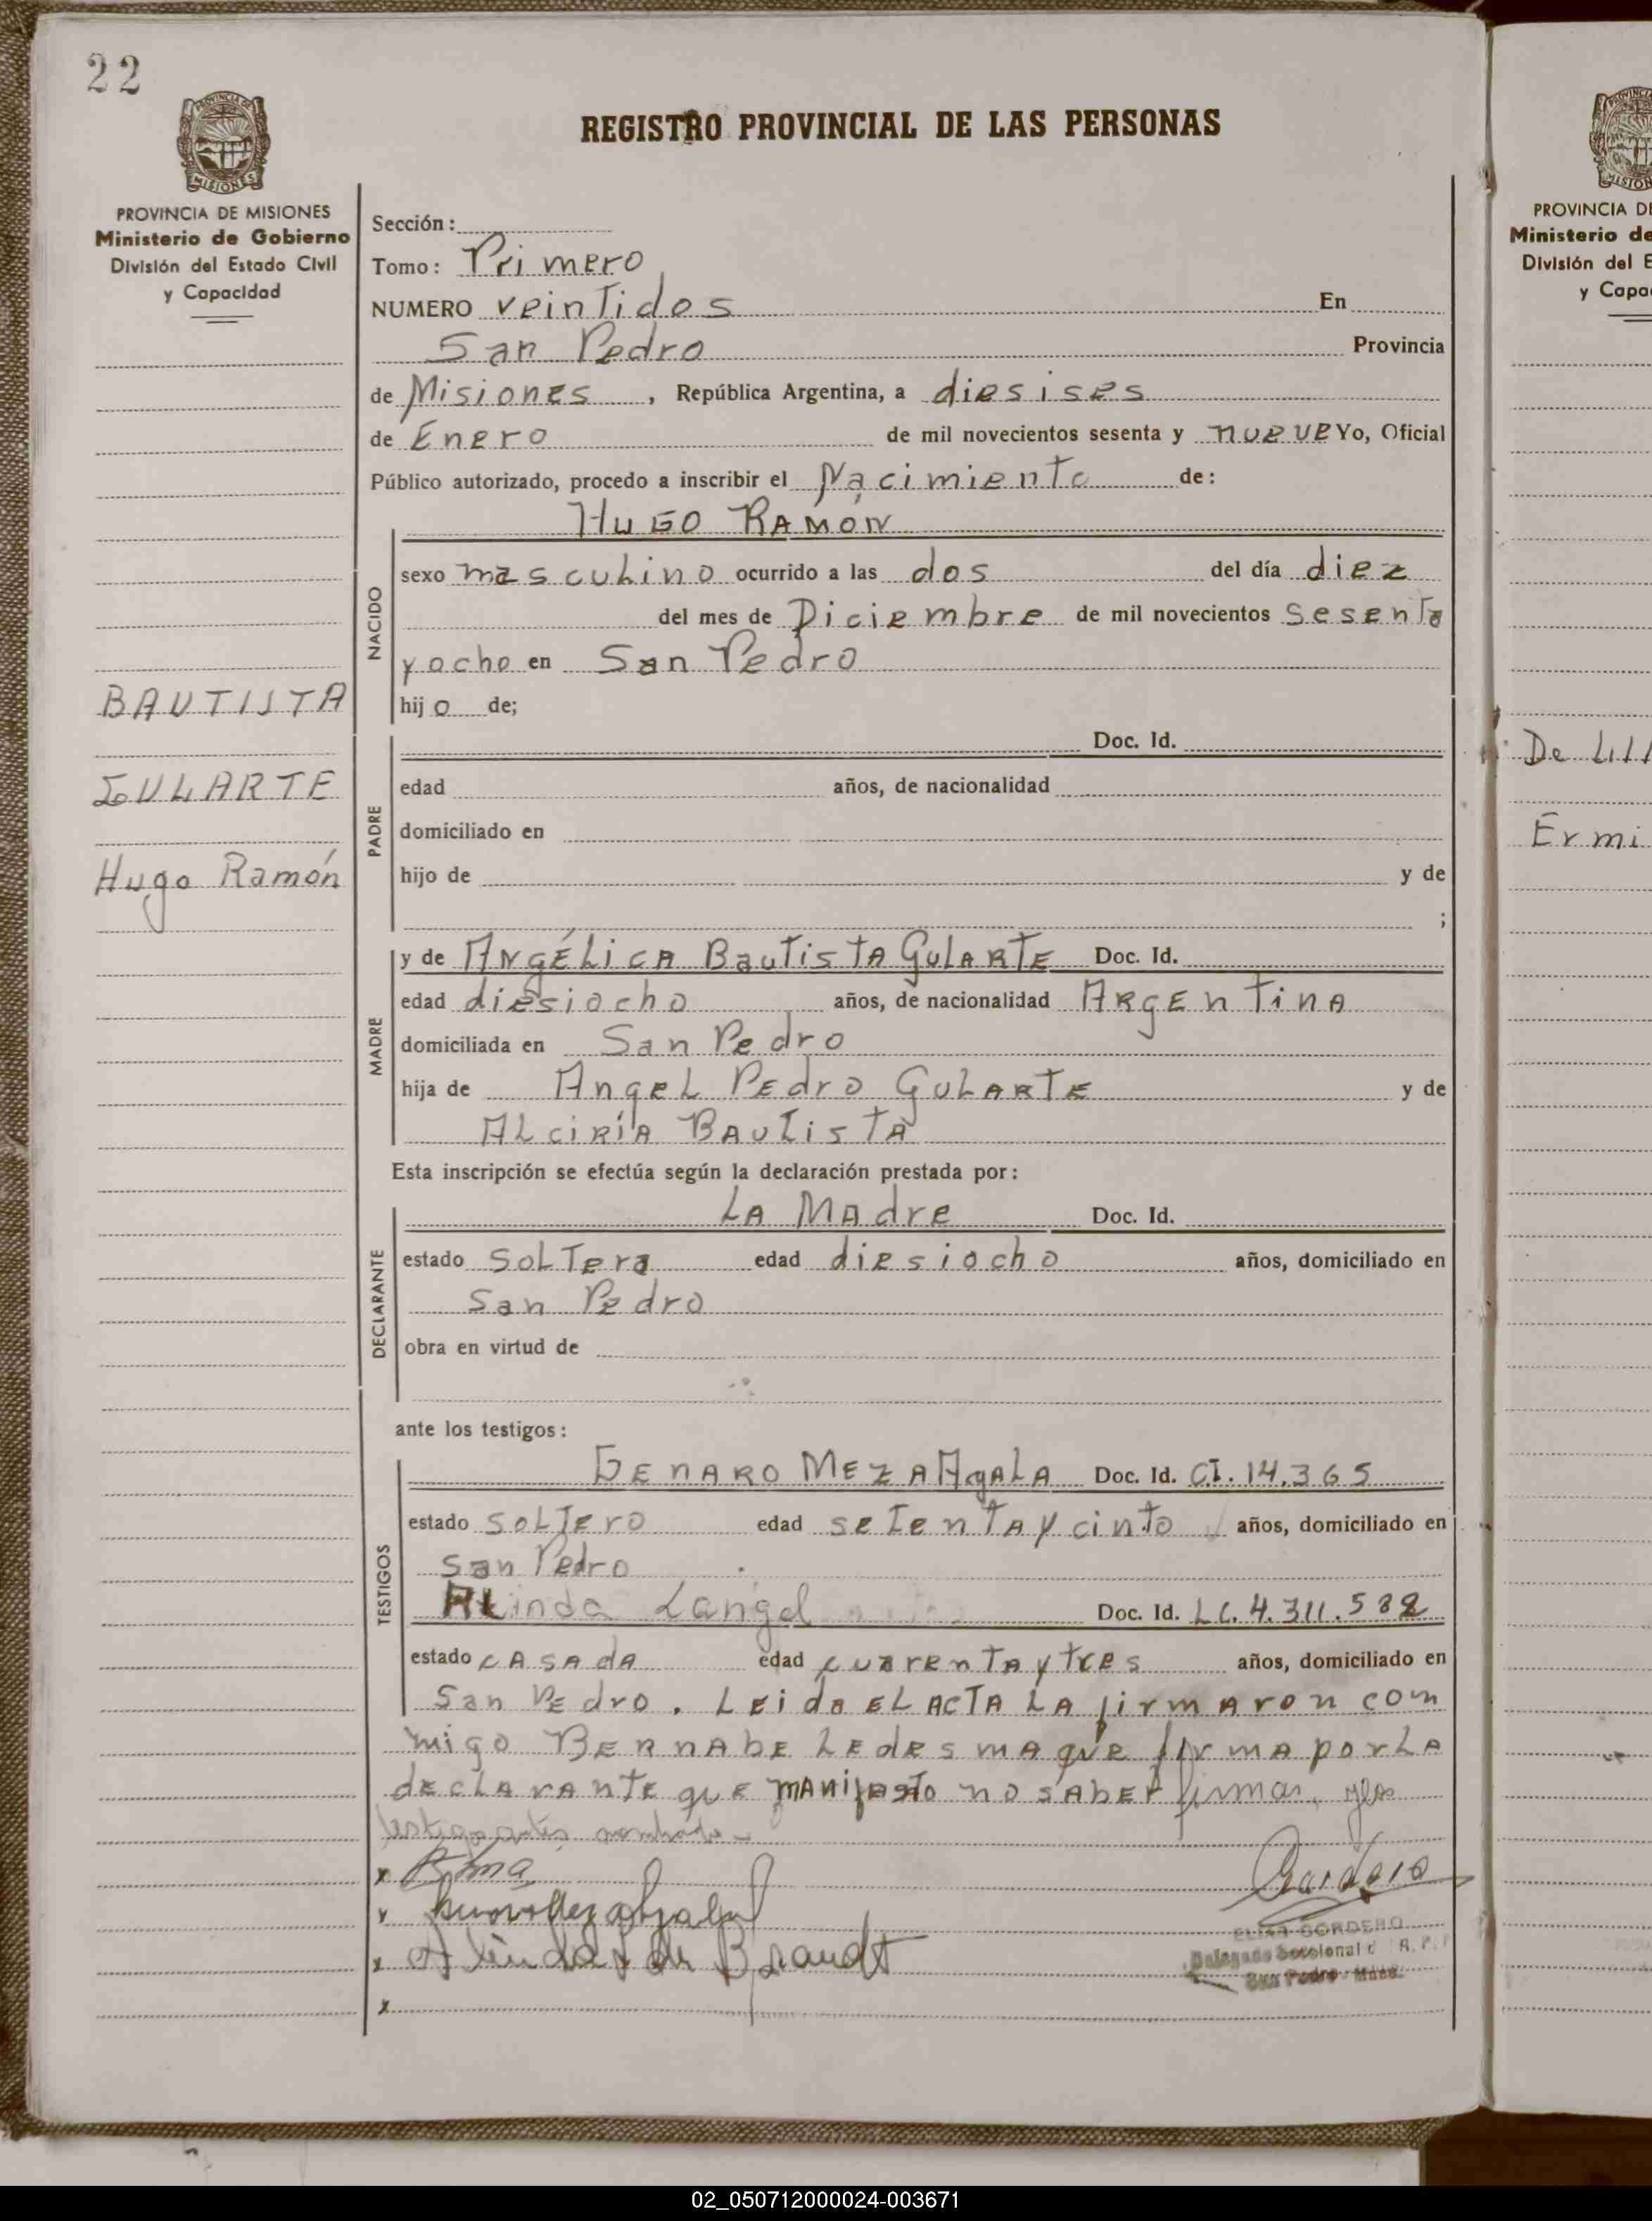 22
REGISTRO PROVINCIAL DE LAS PERSONAS
PROVINCIA DE MISIONES
Ministerio de Gobierno
División del Estado Civil
y Capacidad
Sección:
Tomo: Primero
NUMERO veintidos En
San Pedro Provincia
de Misiones, República Argentina, a diesises
de Enero de mil novecientos sesenta y nueve Yo, Oficial
Público autorizado, procedo a inscribir el Nacimiento de:
HUGO RAMÓN
NACIDO
sexo masculino ocurrido a las dos del día diez
del mes de Diciembre de mil novecientos sesenta
y ocho en San Pedro
hijo de;
BAUTISTA
GULARTE
Hugo Ramón
PADRE
Doc. Id.
edad años, de nacionalidad
domiciliado en
hijo de y de
;
MADRE
y de ANGÉLICA BAUTISTA GULARTE Doc. Id.
edad diesiocho años, de nacionalidad ARGENTINA
domiciliada en San Pedro
hija de Angel Pedro GULARTE y de
ALCIRIA BAUTISTA
Esta inscripción se efectúa según la declaración prestada por:
DECLARANTE
LA MADRE Doc. Id.
estado SOLTERA edad diesiocho años, domiciliado en
San Pedro
obra en virtud de
ante los testigos:
TESTIGOS
GENARO MEZA AYALA Doc. Id. CI. 14.365
estado SOLTERO edad setenta y cinto años, domiciliado en
San Pedro
Alinda Langel Doc. Id. LC. 4.311.582
estado CASADA edad cuarenta y tres años, domiciliado en
San Pedro. LEIDA EL ACTA LA firmaron con
migo BERNABE LEDESMA que firma por LA
DECLARANTE que manifesto no saber firmar, y los
testigos antes nombrados -
x
x
x
x
Cordero
ELISA CORDERO
Delegado Seccional R. P.
San Pedro - Mnes.
PROVINCIA DE
Ministerio de
División del E
y Capa
De LI
Ermi
02_050712000024-003671